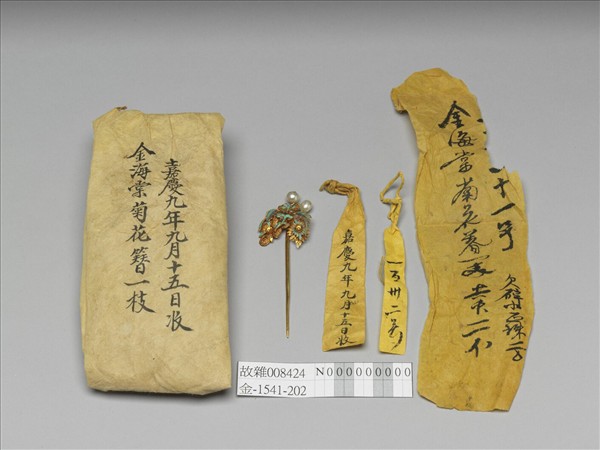 嘉慶九年九月十五日收
金海棠菊花簪一枝
嘉慶九年九月十五日收
卅二号
十一号
金海棠菊花簪
故雜008424 N000000000
金-1541-202